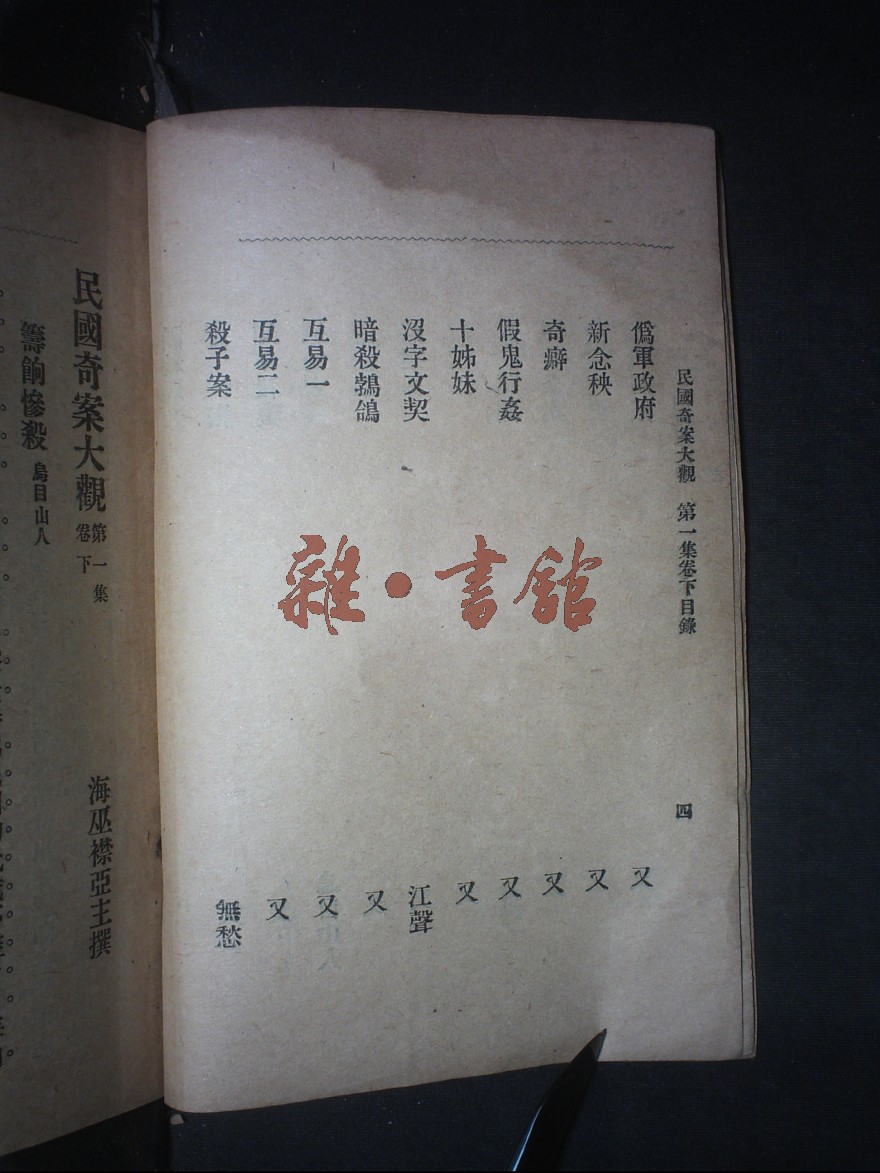 民國奇案大觀 第一集卷下目錄 四
僞軍政府 又
新念秧 又
奇癖 又
假鬼行姦 又
十姊妹 又
沒字文契 江聲
暗殺鵓鴿 又
互易一 又
互易二 又
殺子案 無愁
雜·書館
民國奇案大觀 第一集卷下 海巫襟亞主撰
籌餉慘殺 烏目山人